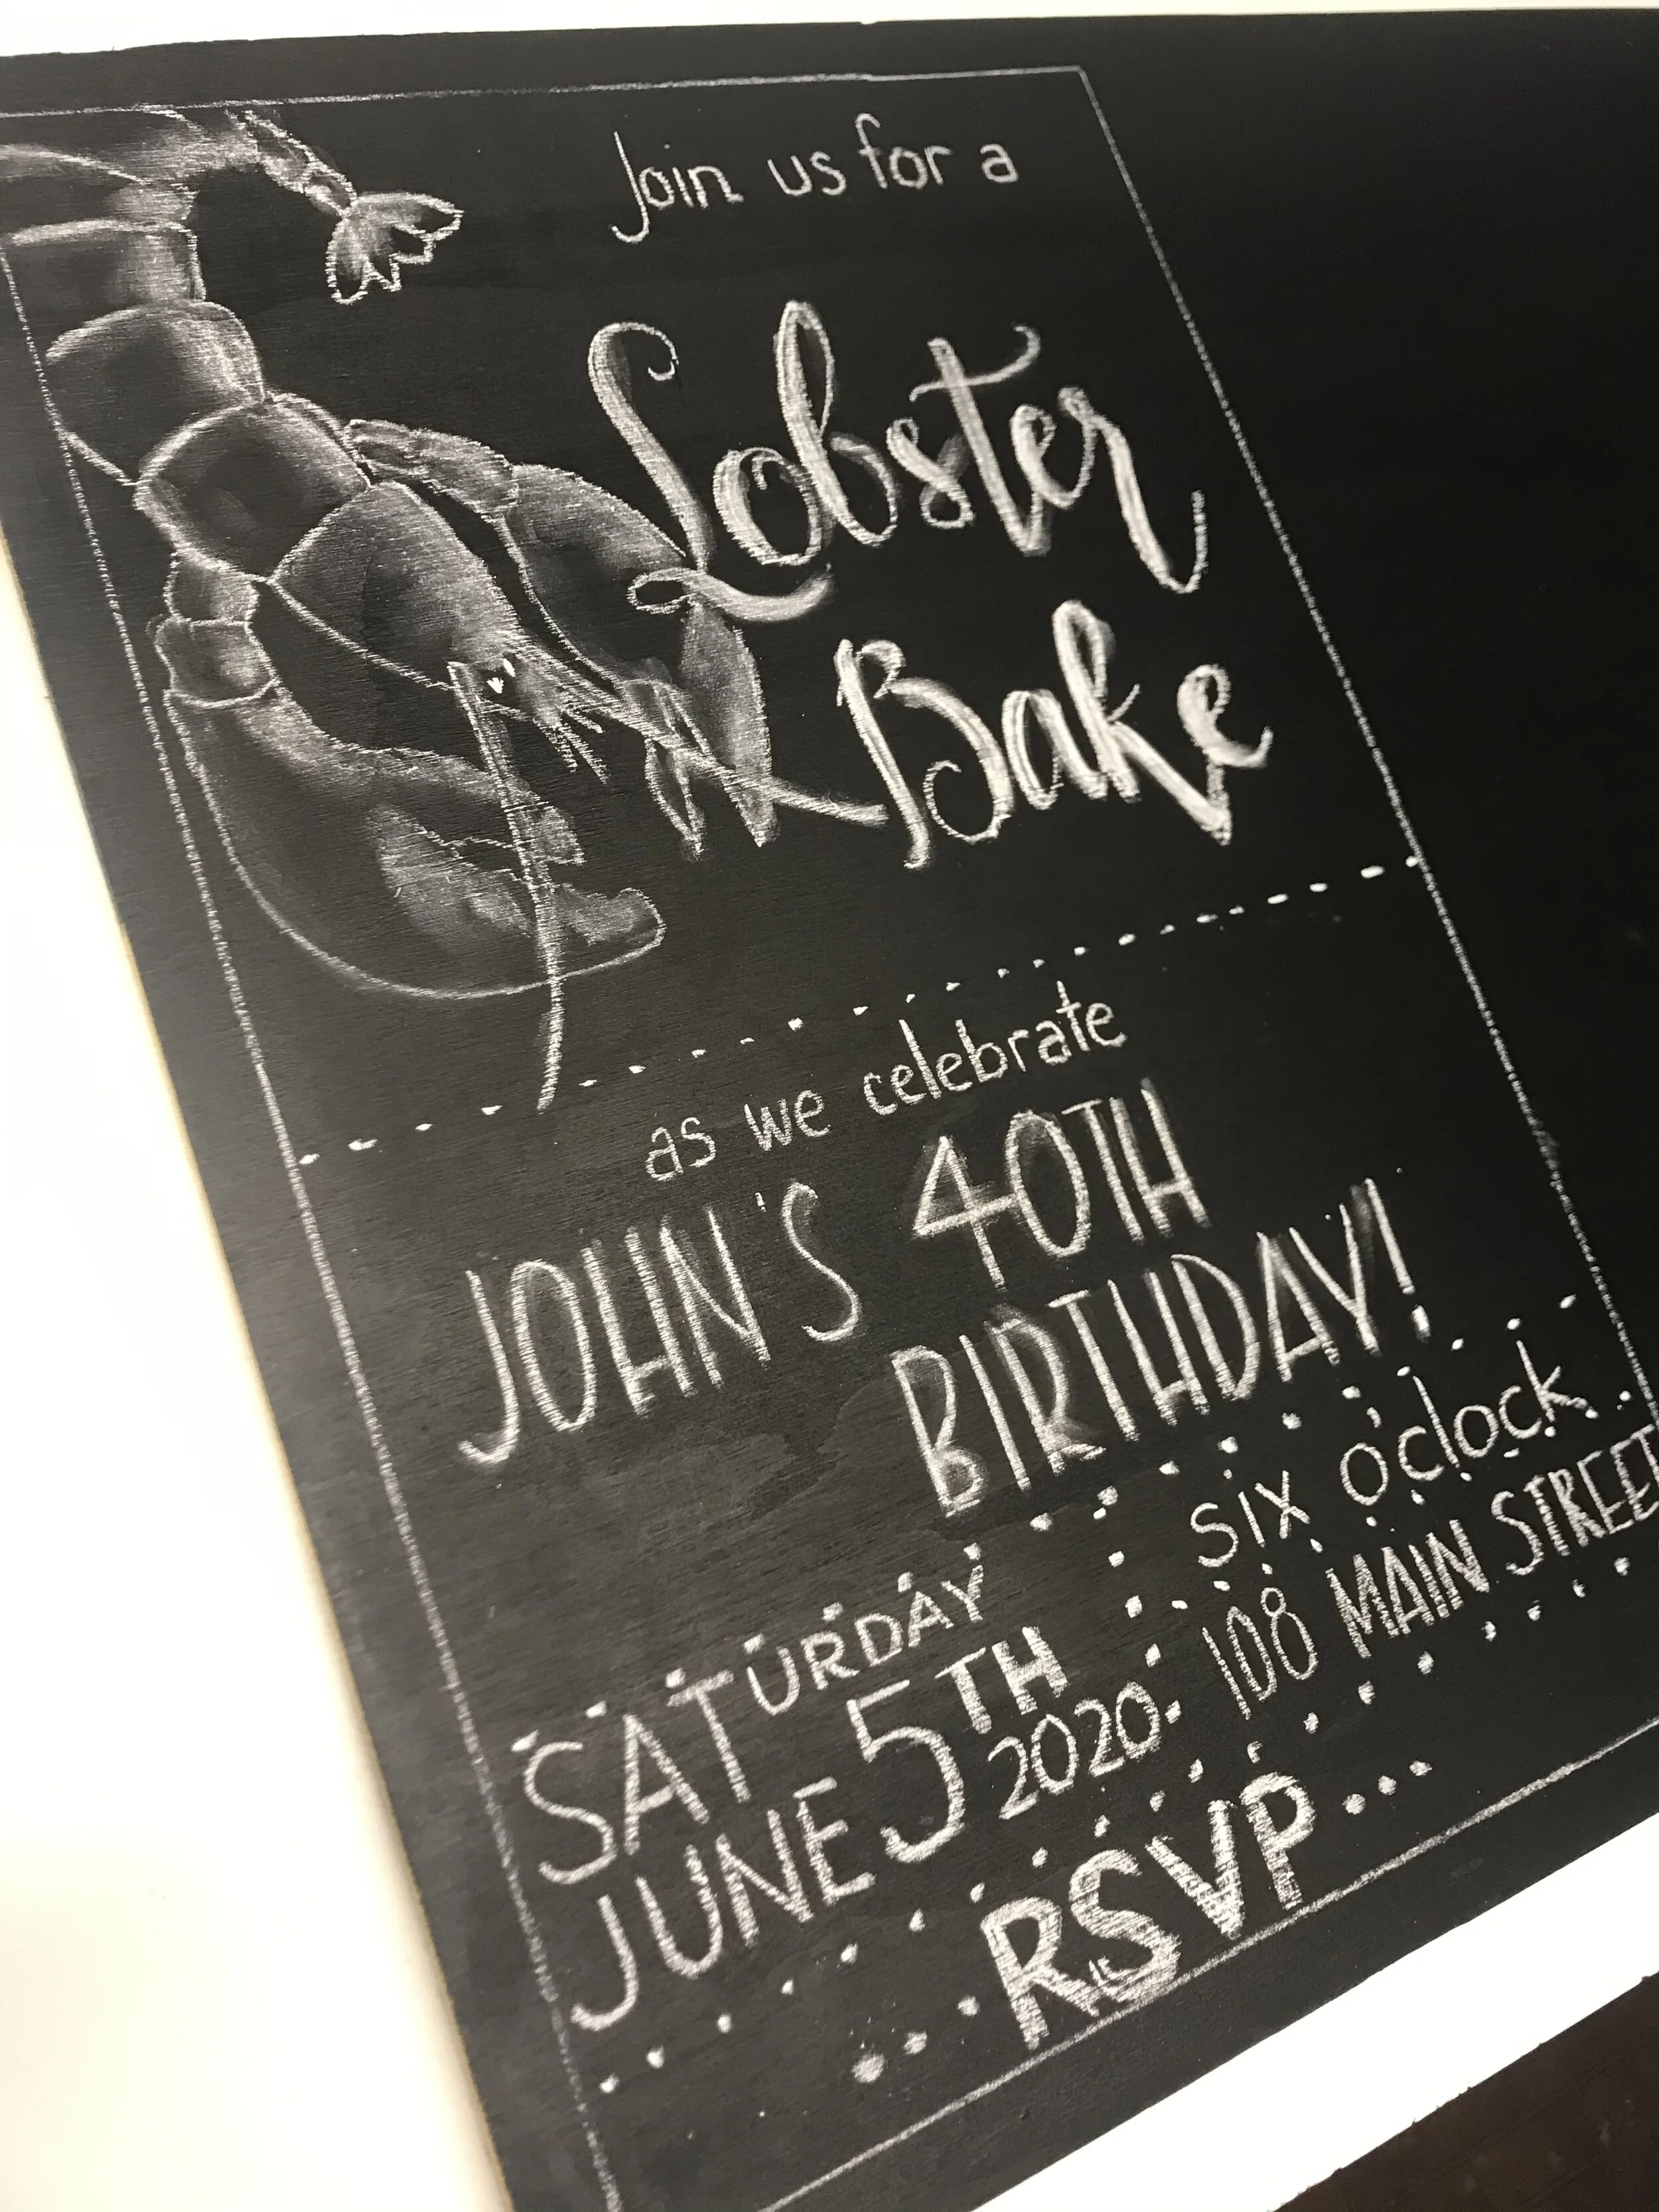 Join us for a
Lobster
Bake
as we celebrate
JOHN'S 40TH
BIRTHDAY!
SATURDAY
JUNE 5TH
2020
six o'clock
108 MAIN STREET
...RSVP...